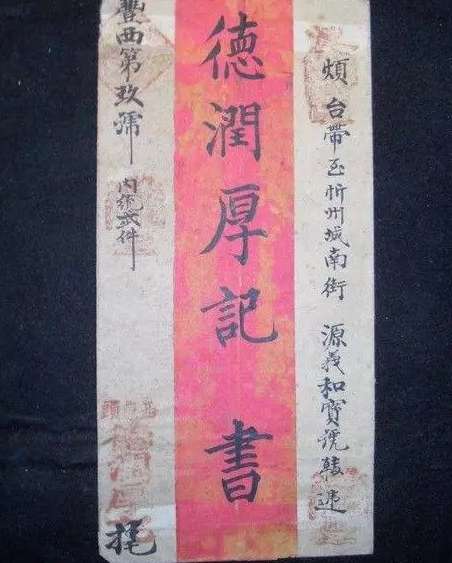 煩 台帶至忻州城南街 源義和寶號
德潤厚記 書
豐西第玖號 內統弍件
德潤厚記